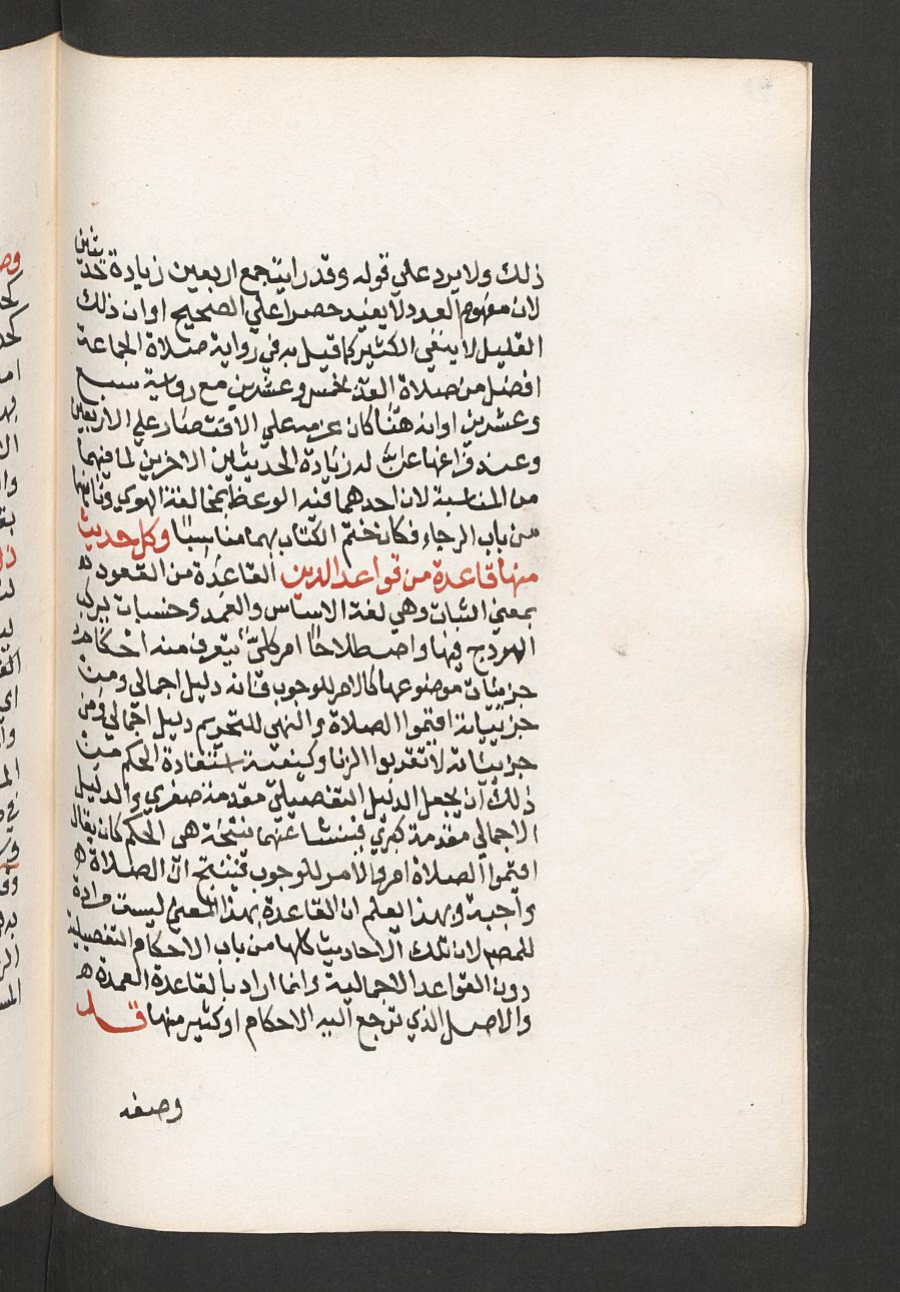 ذلك ولا يرد علي قوله وقد رايت جمع اربعين زيادة حديثين
لان مفهوم العدد لا يفيد حصرا علي الصحيح او ان ذلك
القليل لا ينفي الكثير كما قيل به في رواية صلاة الجماعة
افضل من صلاة الفذ بخمس وعشرين مع رواية سبع
وعشرين او انه هنا كان عزمه علي الاقتصار علي الاربعين
وعند فراغها عن له زيادة الحديثين الاخرين لما فيهما
من المناسبة لان احدهما فيه الوعظ بمخالفة الهوي وثانيهما
من باب الرجاء فكان ختم الكتاب بهما مناسبا وكل حديث
منها قاعدة من قواعد الدين القاعدة من القعود ه
بمعني الثبات وهي لغة الاساس والعمد وخشبات يركب
الهودج فيها واصطلاحا امر كلي يتعرف منه احكام
جزئيات موضوعها كالامر للوجوب فانه دليل اجمالي ومن
جزئياته اقيموا الصلاة والنهي للتحريم دليل اجمالي ومن
جزئياته لا تقربوا الزنا وكيفية استفادة الحكم من
ذلك ان يجعل الدليل التفصيلي مقدمة صغري والدليل
الاجمالي مقدمة كبري فينشا عنهما نتيجة هي الحكم كان يقال
اقيموا الصلاة امر والامر للوجوب فينتج ان الصلاة ه
واجبة وبهذا يعلم ان القاعدة بهذا المعني ليست مرادة
للمصم لان تلك الاحاديث كلها من باب الاحكام التفصيلية
دون القواعد الاجمالية وانما اراد بالقاعدة العمدة ه
والاصل الذي ترجع اليه الاحكام او كثير منها قد
وصفه